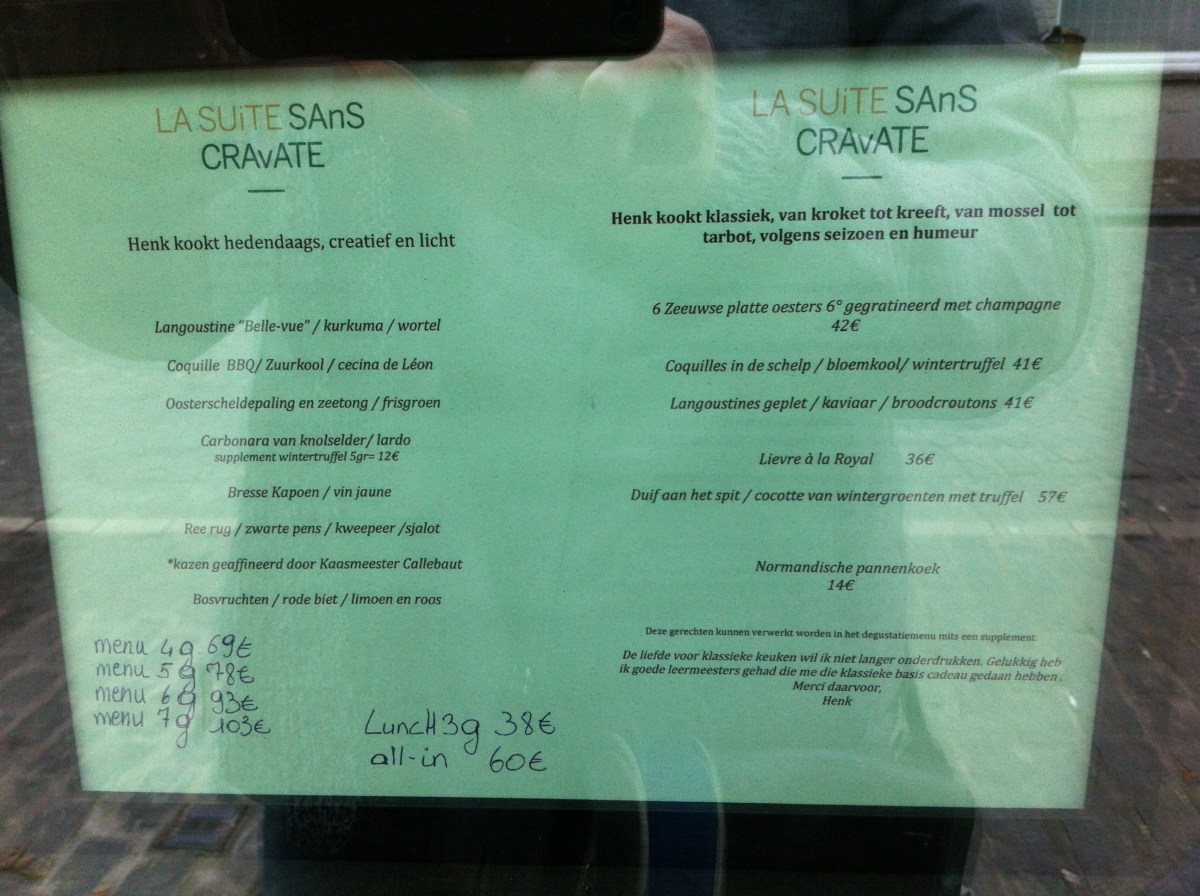 LA SUiTE SAnS
CRAvATE
Henk kookt hedendaags, creatief en licht
Langoustine "Belle-vue" / kurkuma / wortel
Coquille BBQ/ Zuurkool / cecina de Léon
Oosterscheldepaling en zeetong / frisgroen
Carbonara van knolselder/ lardo
supplement wintertruffel 5gr= 12€
Bresse Kapoen / vin jaune
Ree rug / zwarte pens / kweepeer /sjalot
*kazen geaffineerd door Kaasmeester Callebaut
Bosvruchten / rode biet / limoen en roos
menu 4g 69€
menu 5g 78€
menu 6g 93€
menu 7g 103€
LuncH 3g 38€
all-in 60€
LA SUiTE SAnS
CRAvATE
Henk kookt klassiek, van kroket tot kreeft, van mossel tot
tarbot, volgens seizoen en humeur
6 Zeeuwse platte oesters 6° gegratineerd met champagne
42€
Coquilles in de schelp / bloemkool/ wintertruffel 41€
Langoustines geplet / kaviaar / broodcroutons 41€
Lievre à la Royal 36€
Duif aan het spit / cocotte van wintergroenten met truffel 57€
Normandische pannenkoek
14€
Deze gerechten kunnen verwerkt worden in het degustatiemenu mits een supplement
De liefde voor klassieke keuken wil ik niet langer onderdrukken. Gelukkig heb
ik goede leermeesters gehad die me die klassieke basis cadeau gedaan hebben.
Merci daarvoor,
Henk